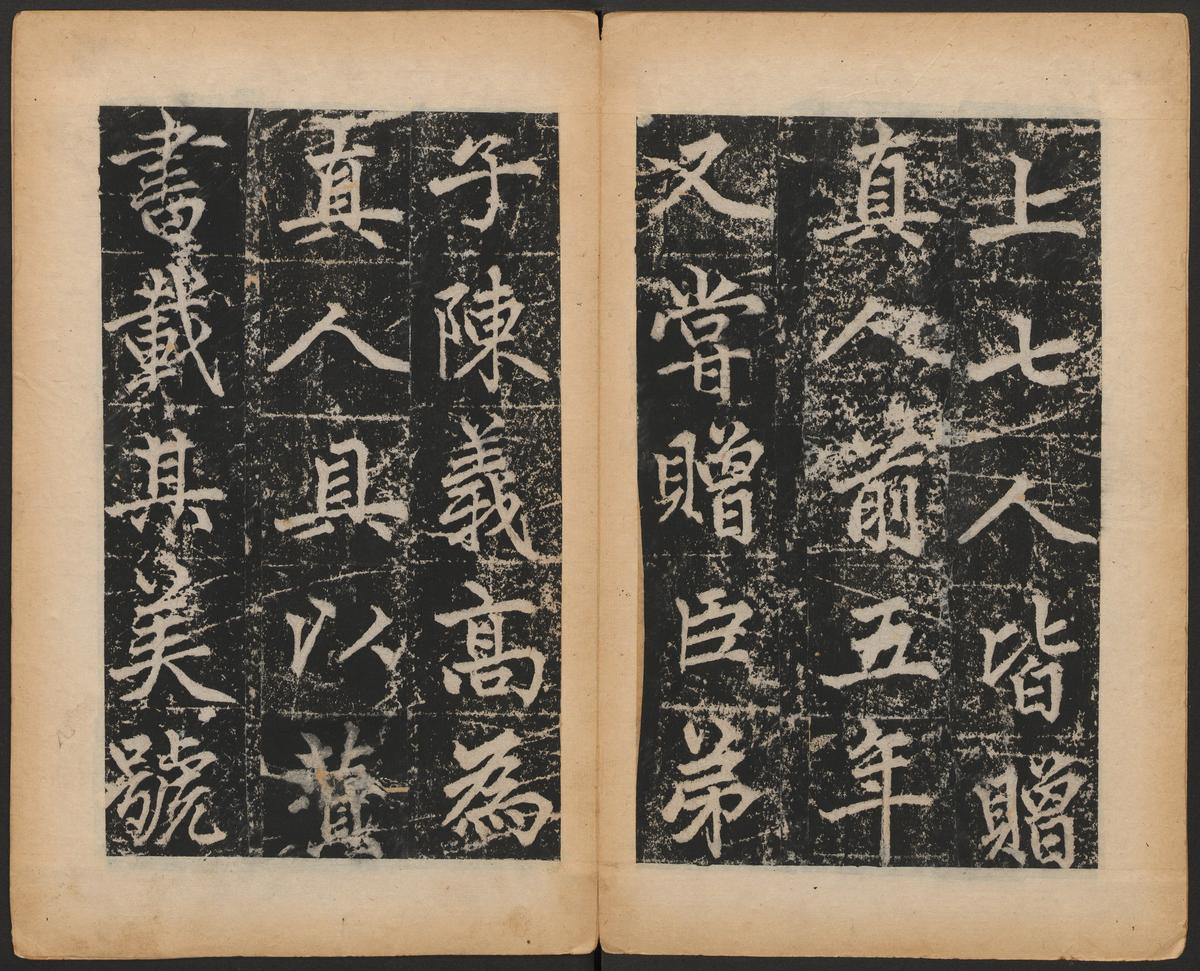 上七人皆贈
真人前五年
又甞贈臣弟
子陳義高為
真人具以
書載其美號